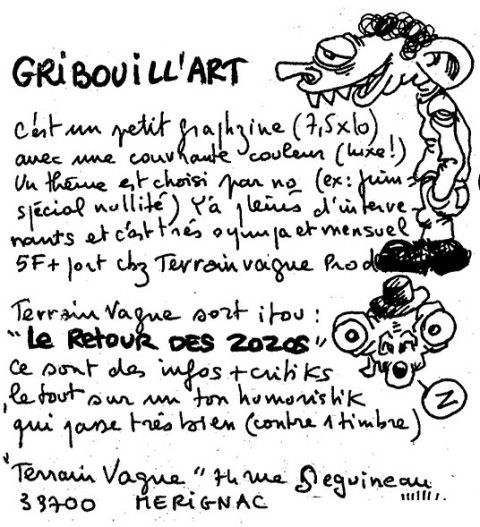 GRiBOUiLL'ART
c'est un petit graphzine (7,5x10)
avec une couvrante couleur (luxe!)
Un thème est choisi par no (ex: juin =
spécial nullité) Y'a pleins d'interve-
nants et c'est très sympa et mensuel
5F + port chz Terrain vague Prod
Terrain Vague sort itou :
"LE RETOUR DES ZOZOS"
ce sont des infos + critiks
le tout sur un ton humoristik
qui passe très bien (contre 1 timbre)
"Terrain Vague" 74 rue Seguineau
33700 MERIGNAC
N